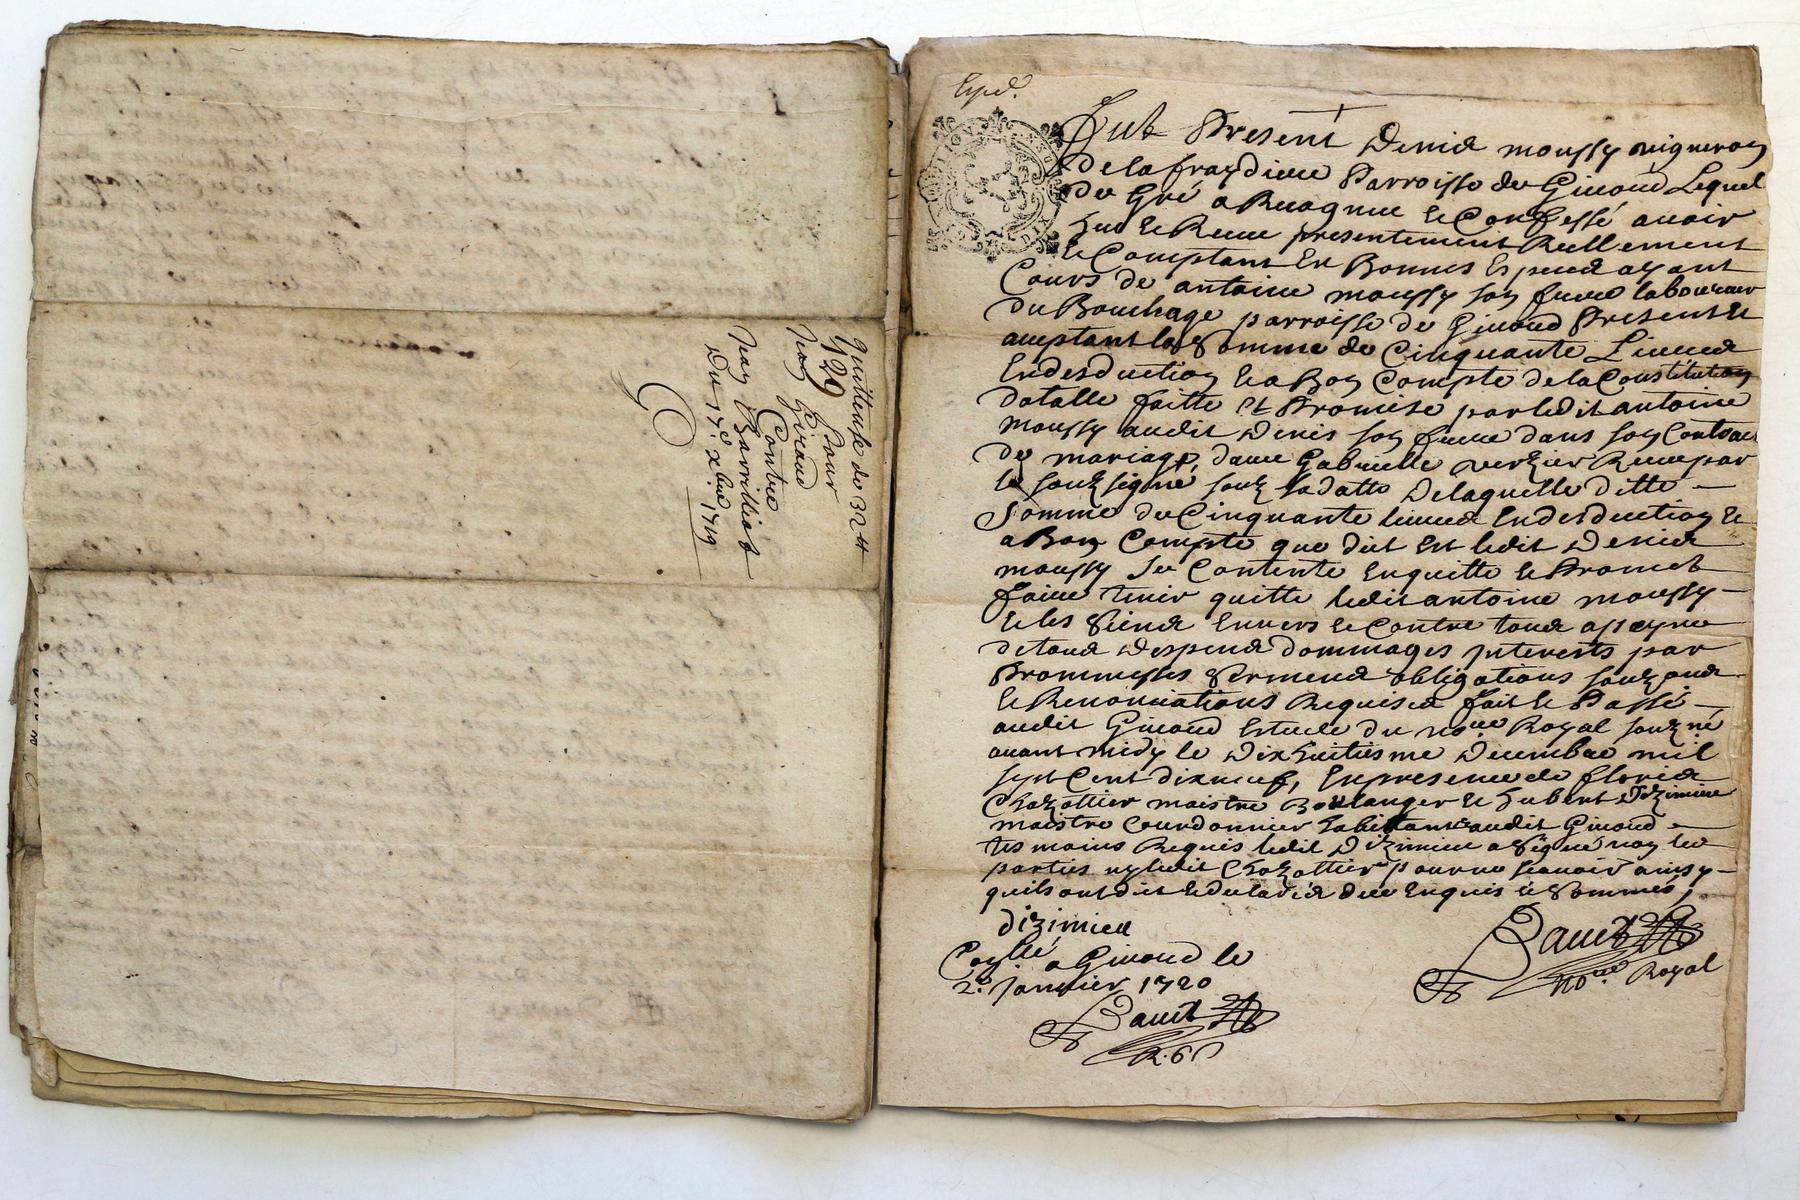 quittense de 32 ₶
129 pour
Jean Giraud
Contre
Jean Barrilliot
Du 17.e xbre 1719
Exped.
Fut Present Denis moussy vigneron
de la fraydiere Parroisse de Givord Lequel
de Gré a Recognu et Confessé avoir
heu et Receu presentement Reellement
et Comptant En Bonnes Especes ayant
Cours de antoine moussy son frere laboureur
du Bouchage parroisse de Givord Present et
acceptant la Somme de Cinquante Livres
En desduction et a Bon Compte de la Constitution
dotalle faitte et Promise par ledit antoine
moussy audit Denis son frere dans son Contract
de mariage, davec Gabrielle verzier Receu par
le souzsigné souz sa datte De laquelle ditte
Somme de Cinquante livres En desduction et
a Bon Compte que dit Est ledit Denis
moussy Se Contente En quitte et Promet
faire tenir quitte ledit antoine moussy
et les Siens Envers et Contre tous a peyne
de tous Despens dommages interests par
Prommesses Serment obligations souz
et Renonciations Requises fait et Passé
audit Givord Estude du no.re Royal souz.né
avant midy le Dixhuitiesme Decembre mil
sept Cent dixneuf, En presence de floris
Chazottier maistre Boulanger et hubert Dizimieu
maistre Courdonnier habittants audit Givord
tesmoins Requis ledit Dizimieu a Signé non les
parties ny ledit Chazottier pour ne scavoir ainsy
quils ont dit et declaré de ce Enquis et Sommés,
dizimieu
Con.llé a Givord le
2.e Janvier 1720
no.re Royal
R. 6 s